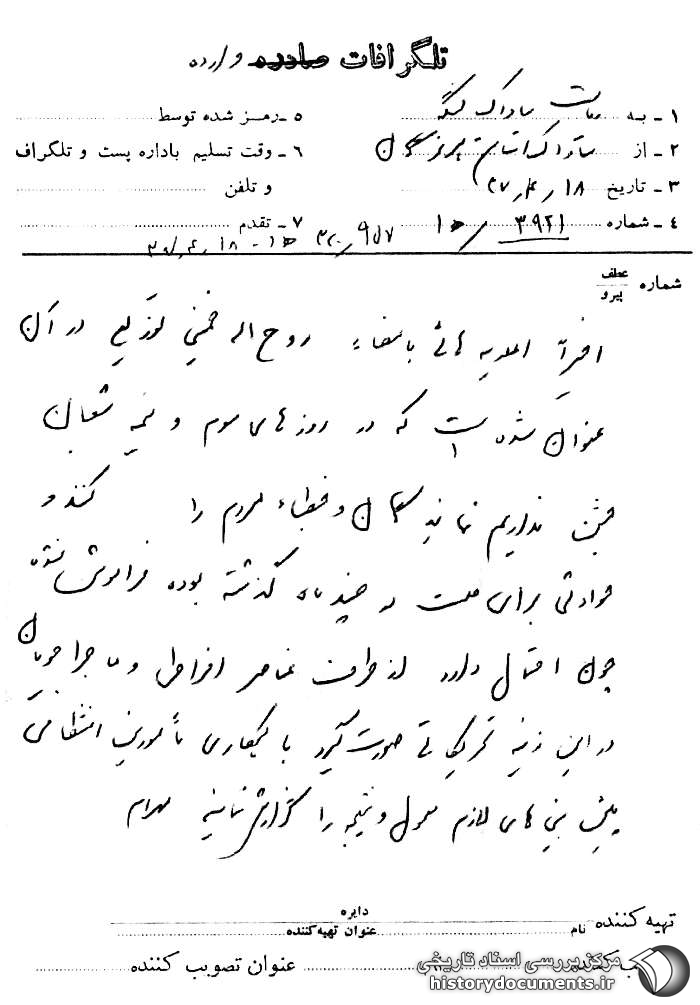 تلگرافات صادره وارده
۱ - به ریاست ساواک
۲ - از ساواک استان
۳ - تاریخ ۱۸ ر ۴ ر ۳۷
۴ - شماره ۳۹۲۱ / ۱۵
۵ - رمز شده توسط
۶ - وقت تسلیم باداره پست و تلگراف
و تلفن
۷ - تقدم
شماره عطف
پیرو
اخیراً اعلامیه هائی بامضاء روح اله خمینی توزیع در آن
عنوان شده است که در روزهای سوم و نیمه شعبان
جشن نداریم وخطباء مردم را کنند و
حوادثی برای ملت در چند ماه گذشته بوده فراموش نشده
چون احتمال دارد از طرف عناصر افراطی و ماجراجویان
در این زمینه تحریکاتی صورت گیرد با همکاری مأمورین انتظامی
پیش بینی های لازم معمول و نتیجه را گزارش نمایند
تهیه کننده
دایره
نام عنوان تهیه کننده
عنوان تصویب کننده
مرکز بررسی اسناد تاریخی
historydocuments.ir